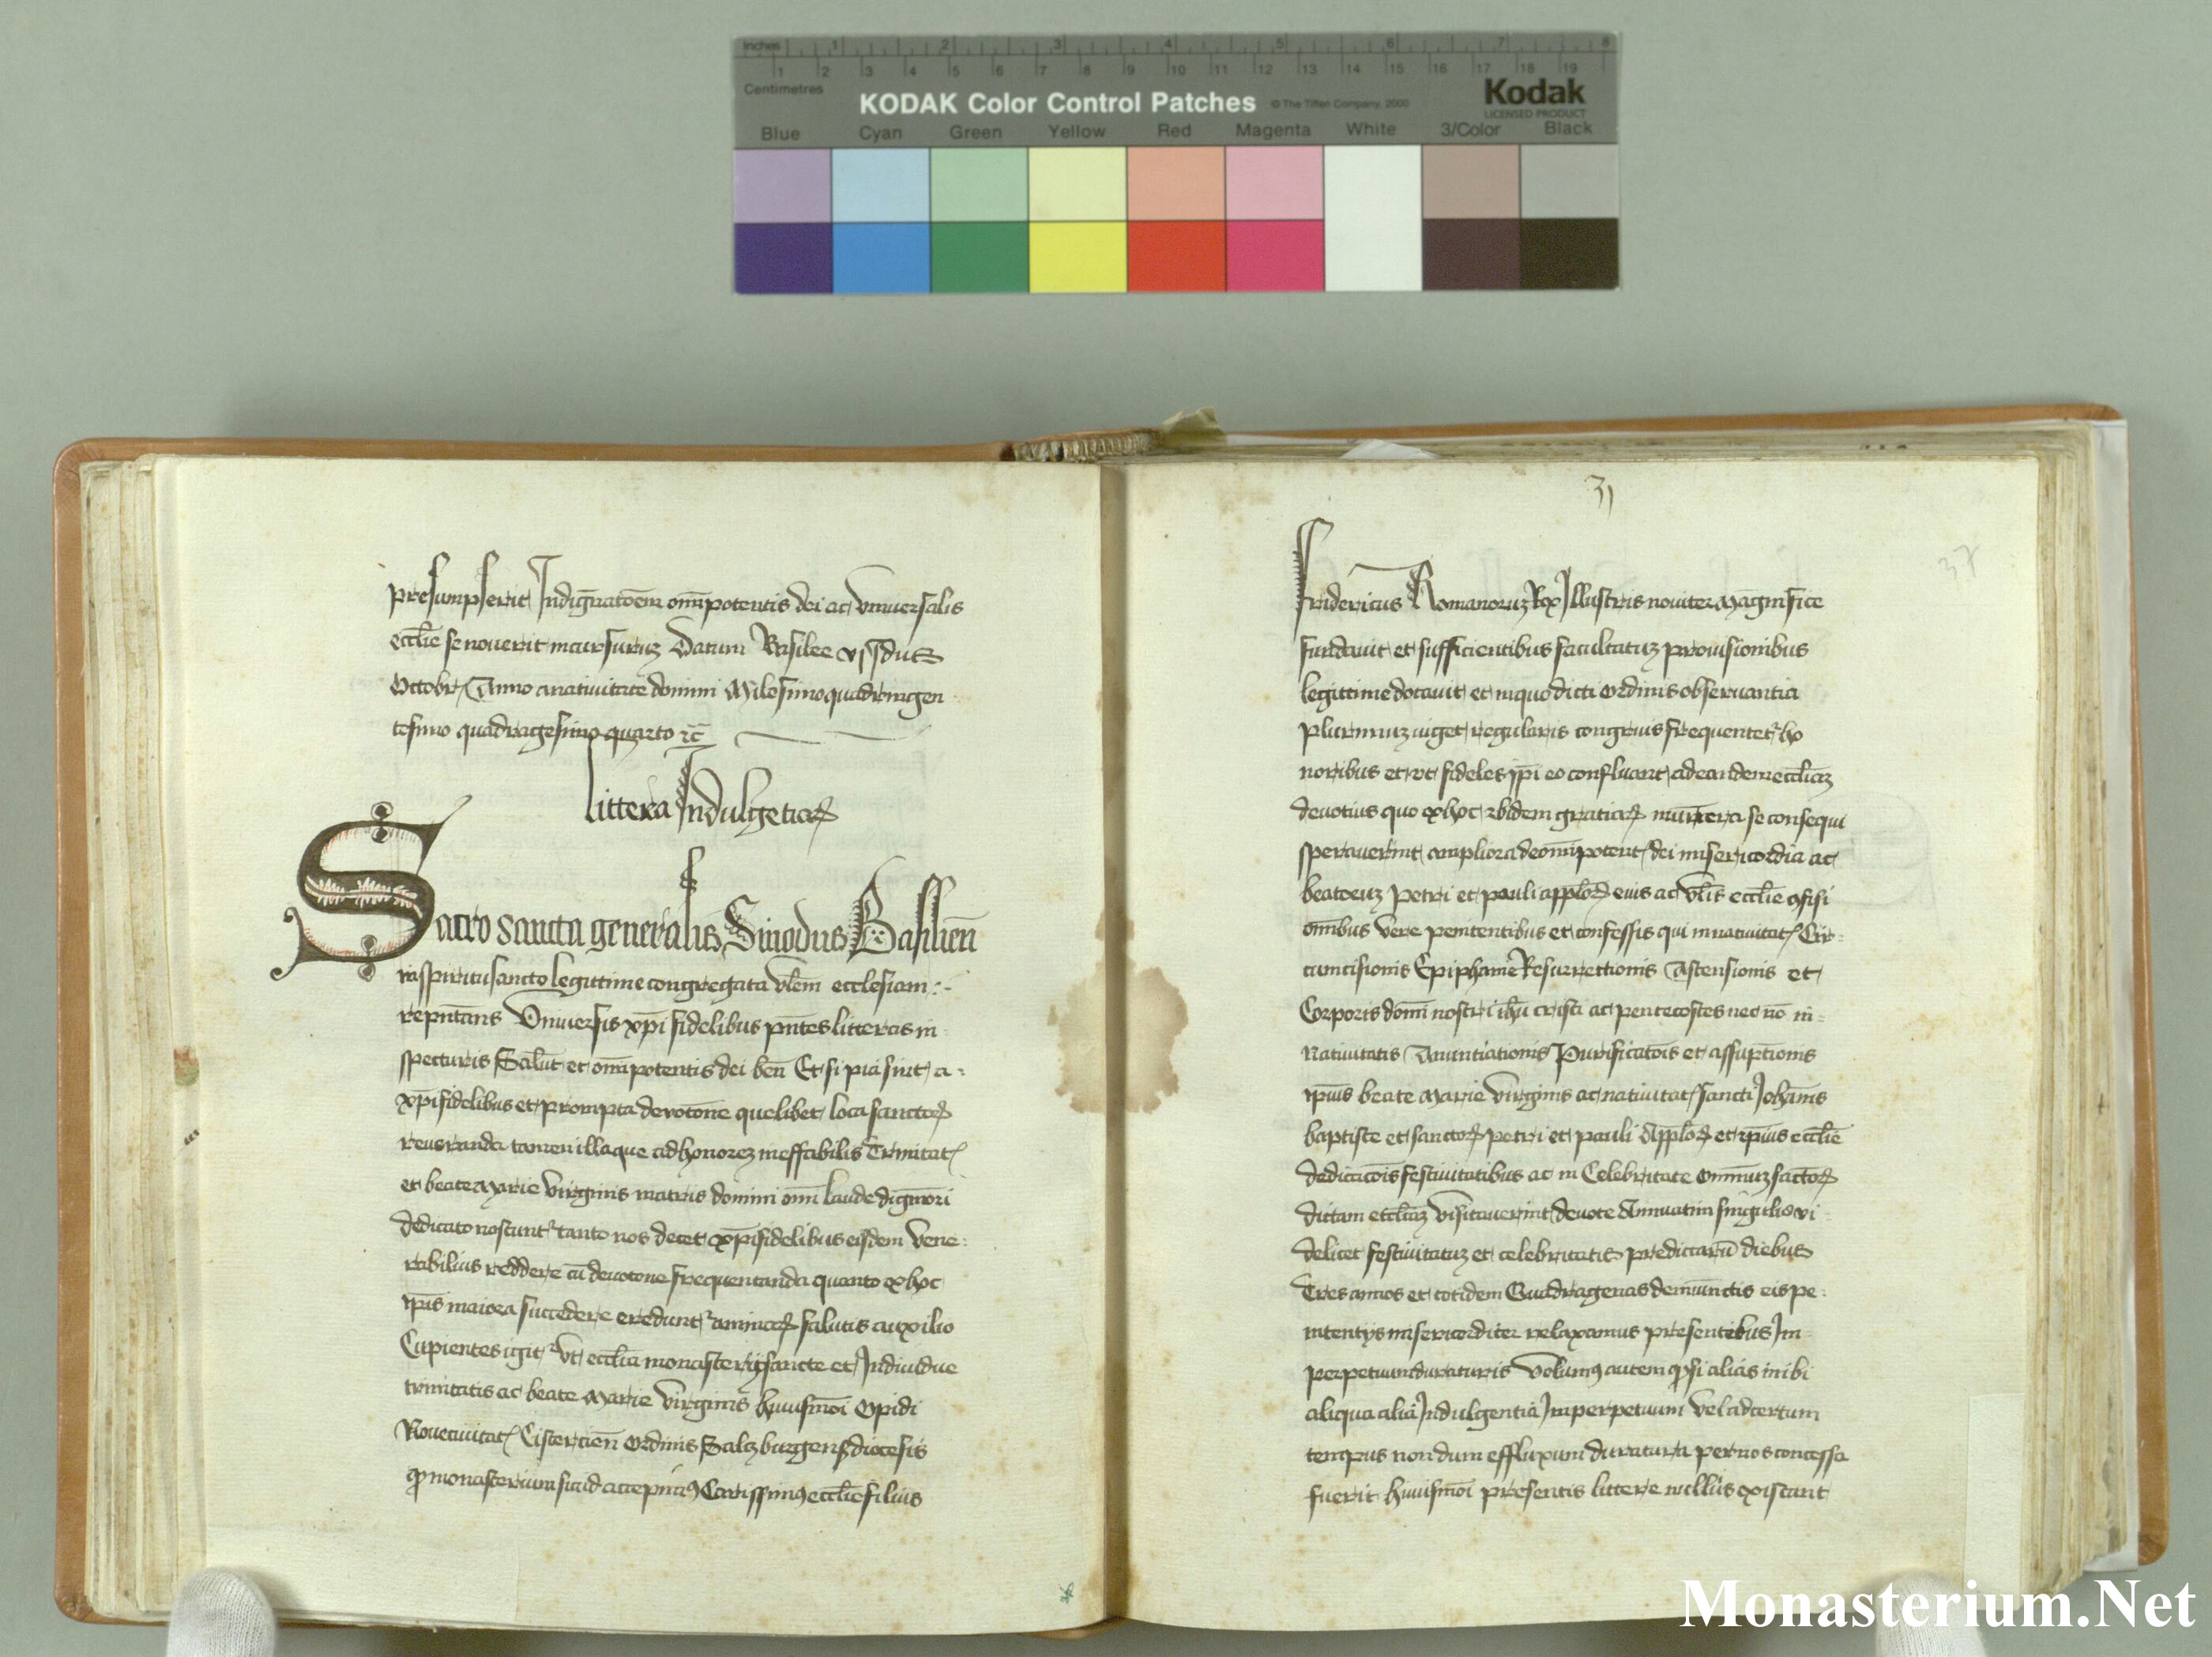 Inches 1 2 3 4 5 6 7 8
1 2 3 4 5 6 7 8 9 10 11 12 13 14 15 16 17 18 19
Centimetres
KODAK Color Control Patches © The Tiffen Company, 2000 Kodak
LICENSED PRODUCT
Blue Cyan Green Yellow Red Magenta White 3/Color Black
presumpserit Indignac̄oēm om̄ipotentis dei ac vniuersalis
eccl̄ie se nouerit incursuruz Datum Basilee vj Idus
Octobr̄ Anno a natiuitate domini Milesimo quadringen
tesimo quadragesimo quarto ⁊c̄
littera Indulgētiaꝝ
Sacro sancta generalis Sinodus Basilien̄
in spiritu sancto legittime congregata vl̄em ecclesiam :-
repn̄tans Vniuersis xp̄i fidelibus pn̄tes litteras in
specturis Salut̄ et om̄ipotentis dei ben̄ Et si pia sint a :
xp̄ifidelibus et prompta deuoc̄one quelibet loca sanctoꝝ
reueranda tamen illa que ad honorez ineffabilis Trinitat̄
et beate Marie virginis matris domini om̄i laude digniori
dedicato noscunt᷑ tanto nos decet xp̄ifidelibus eisdem vene :
rabilius reddere cū deuotone frequentanda quanto ex hoc
ip̄is maiora succedere credunt᷑ animaꝝ salutis auxilio
Cupientes igit᷑ vt eccl̄ia monasterij sancte et Indiuidue
trinitatis ac beate Marie virginis huiusmōi Opidi
Noueciuitat̄ Cistercien̄ ordinis Salczburgens̄ diocesis
ꝙ monasterium sicud accepimꝰ Carissimꝰ eccl̄ie filius
36
31
37
Fridericus Romanoruz Rex Illustris nouiter Magnifice
fundauit et sufficientibus facultatuz prouisionibus
legittime dotauit et in quo dicti ordinis obseruantia
plurimuz uiget regularis congruis frequentet᷑ ho
noribus et vt fideles ip̄i eo confluant ad eandem eccl̄iaz
deuotius quo ex hoc ibidem gratiaꝝ munera se consequi
sperauerint ampliora de om̄ipotent̄ dei misericordia ac
beatoruz Petri et pauli appl̄oꝝ eius ac vl̄is eccl̄ie ꝯfisi
om̄ibus vere penitentibus et confessis qui in natiuitat̄ Cir-
cumcisionis Epiphanie Resurrectionis Astensionis et
Corporis domī nostri ih̄u cristi ac pentecostes nec nō in -
Natiuitatis Anuntiationis Purificatōis et assuptionis
ip̄ius beate Marie virginis ac natiuitat̄ sancti Joh̄anis
baptiste et sanctoꝝ petri et pauli Appl̄oꝝ et ip̄ius eccl̄ie
dedicac̄ois festiuitatibus ac in Celebritate om̄niuz sāctoꝝ
dictam eccl̄iaz visitauerint deuote Annuatim singulis vi
delicet festiuitatuz et celebritatis predictarū diebus
Tres annos et totidem Quadragenas de iniunctis eis pe :
nitentijs misericorditer relaxamus presentibus Im-
perpetuum duraturis Volumꝰ autem ꝙ si alias inibi
aliqua alia Indulgentia Imperpetuum vel ad certum
tempus nondum effluxum duratura per nos concessa
fuerit huiusmōi presentis littere nullius existant
Monasterium.Net